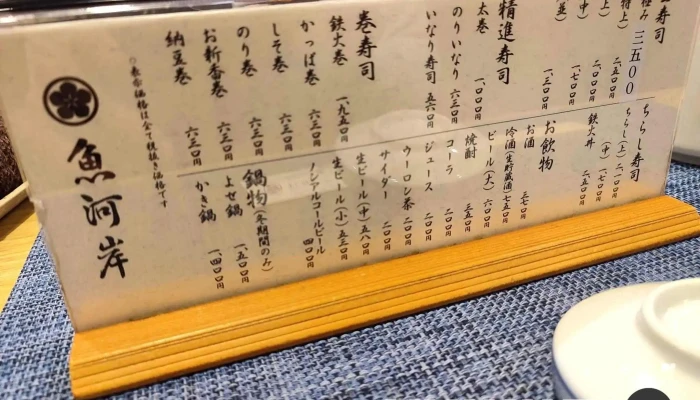 寿司
極み 三五〇〇
特上) 二、五〇〇円
上) 二、〇〇〇円
中) 一、七〇〇円
並) 一、三〇〇円
精進寿司
太巻 一、〇〇〇円
のりいなり 六三〇円
いなり寿司 五六〇円
巻寿司
鉄火巻 一、九五〇円
かっぱ巻 六三〇円
しそ巻 六三〇円
のり巻 六三〇円
お新香巻 六三〇円
納豆巻 六三〇円
ちらし寿司
ちらし(上) 二、一〇〇円
(中) 一、七〇〇円
鉄火丼 二、五〇〇円
お飲物
お酒 三七〇円
冷酒(生貯蔵酒) 七五〇円
ビール(大) 六〇〇円
焼酎 三五〇円
コーラ 二〇〇円
ジュース 二〇〇円
ウーロン茶 二〇〇円
サイダー 二〇〇円
生ビール(中) 五八〇円
生ビール(小) 五三〇円
ノンアルコールビール 四〇〇円
鍋物(冬期間のみ)
よせ鍋 一、五〇〇円
かき鍋 一、四〇〇円
○表示価格は全て税抜き価格です
魚河岸